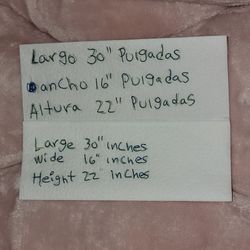 Largo 30" Pulgadas
ancho 16" Pulgadas
Altura 22" Pulgadas
Large 30" inches
Wide 16" inches
Height 22" Inches